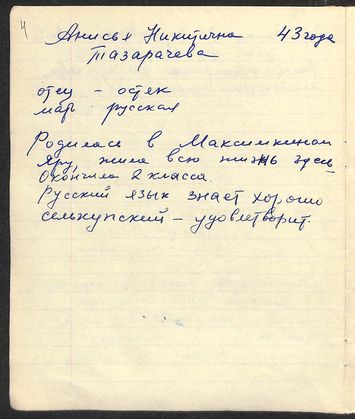 4
Анисья Никитична 43 года
Тазарачева
отец - остяк
мать русская
Родилась в Максимкином
Яру, жила всю жизнь здесь
Окончила 2 класса.
Русский язык знает хорошо
селькупский - удовлетворит.